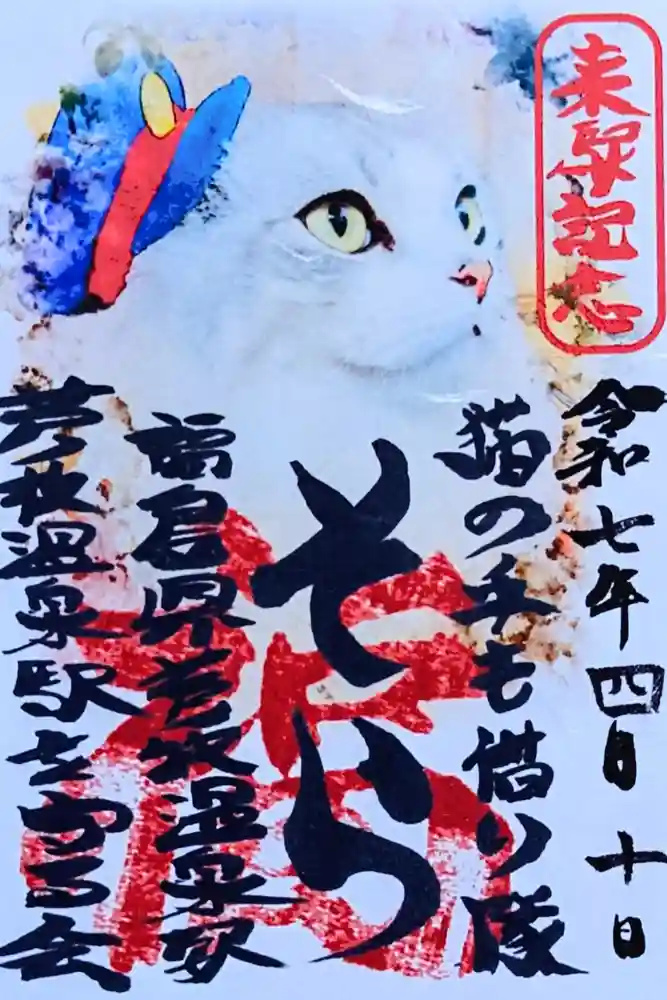 来駅記念
令和七年四月十日
猫の手も借り隊
そら
福島県芦ノ牧温泉駅
芦ノ牧温泉駅を守る会